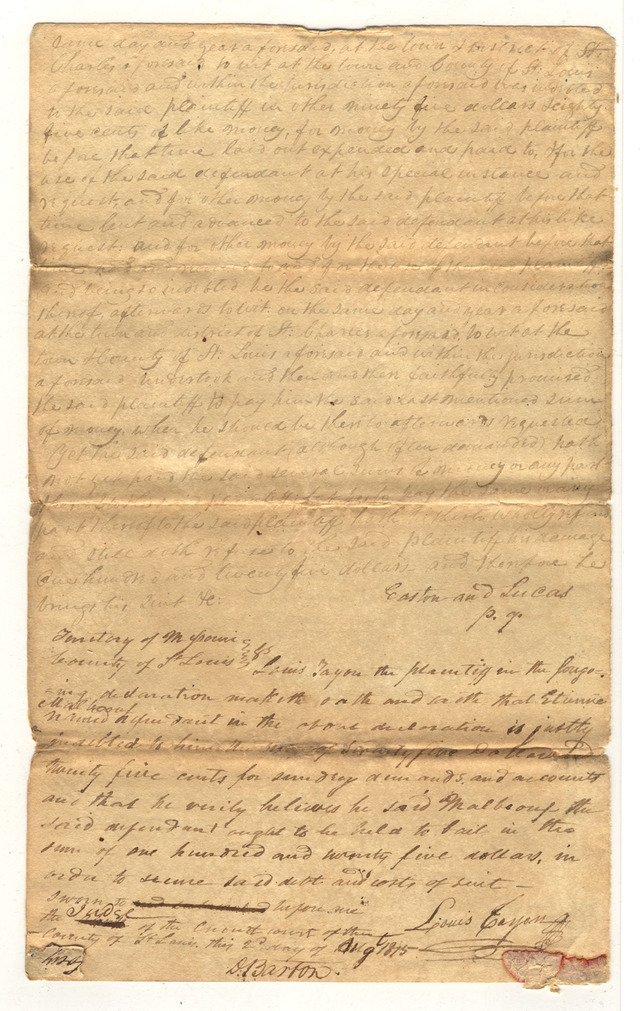 same day and year aforesaid, at the town & district of St.
Charles aforesaid to wit at the town and County of St. Louis
aforesaid and within the jurisdiction aforesaid was indebted
to the said plaintiff in other ninety five dollars Eighty
five cents of like money, for money by the said plaintiff
before that time laid out expended and paid to, & for the
use of the said defendant at his special instance and
request, and for other money by the said plaintiff before that
time lent and advanced to the said defendant at his like
request: and for other money by the said defendant before that
time had and received to and for the use of the said plaintiff
and being so indebted he the said defendant in consideration
thereof, afterwards to wit on the same day and year aforesaid
at the town and district of St. Charles aforesaid, to wit at the
town & County of St. Louis aforesaid and within the jurisdiction
aforesaid undertook and then and there faithfully promised
the said plaintiff to pay him the said last mentioned sum
of money, when he should be thereto afterwards requested
Yet the said defendant (although often demanded) hath
not yet paid the said several sums of money or any part
to pay the same or any
part thereof to the said plaintiff hath hitherto wholly refused
and still doth refuse to the said plaintiff his damage
One hundred and twenty five dollars and therefore he
brings his suit &c.
Easton and Lucas
p. q.
Territory of Missouri
County of St Louis } ss Louis Tayon the plaintiff in the forgo-
ing declaration maketh oath and saith that Etienne
Malboeuf
defendant in the above declaration is justly
indebted to him the sum of Seventy five Dollars &
twenty five cents for sundry demands and accounts
and that he verily believes he said Malbeouf the
said defendant ought to be held to bail in the
sum of one hundred and twenty five dollars, in
order to secure said debt and costs of suit —
Sworn to before me
the Judge of the Circuit court of the
County of St Louis this 2d day of Augt 1815
Louis Tayon
D. Barton.